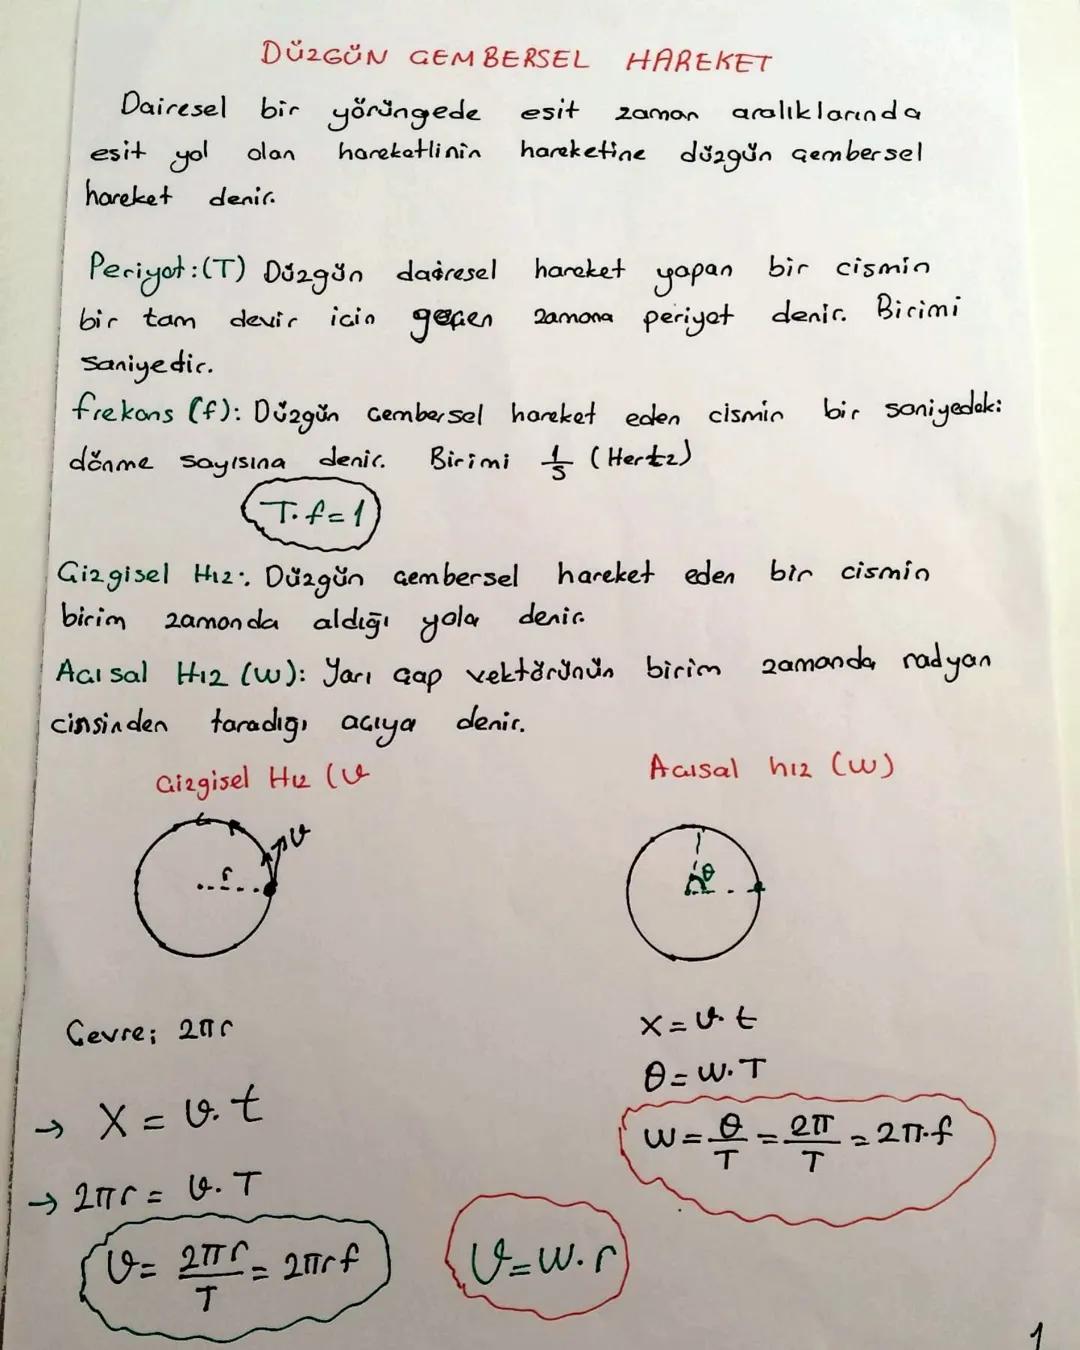 DÜZGÜN ÇEMBERSEL HAREKET
Dairesel bir yörüngede eşit zaman aralıklarında
eşit yol alan hareketlinin hareketine düzgün çembersel
hareket denir.
Periyot:(T) Düzgün dairesel hareket yapan bir cismin
bir tam devir için geçen zamana periyot denir. Birimi
saniyedir.
frekans (f): Düzgün çembersel hareket eden cismin bir saniyedeki
dönme sayısına denir. Birimi 1/s (Hertz)
T.f=1
Çizgisel Hız: Düzgün çembersel hareket eden bir cismin
birim zamanda aldığı yola denir.
Açısal Hız (w): Yarı çap vektörünün birim zamanda radyan
cinsinden taradığı açıya denir.
Çizgisel Hız (v
Açısal hız (w)
v
r
θ
Çevre; 2πr
→ X = v.t
→ 2πr = v.T
v = 2πr/T = 2πrf
X = v.t
θ = w.T
w = θ/T = 2π/T = 2π.f
v = w.r
1